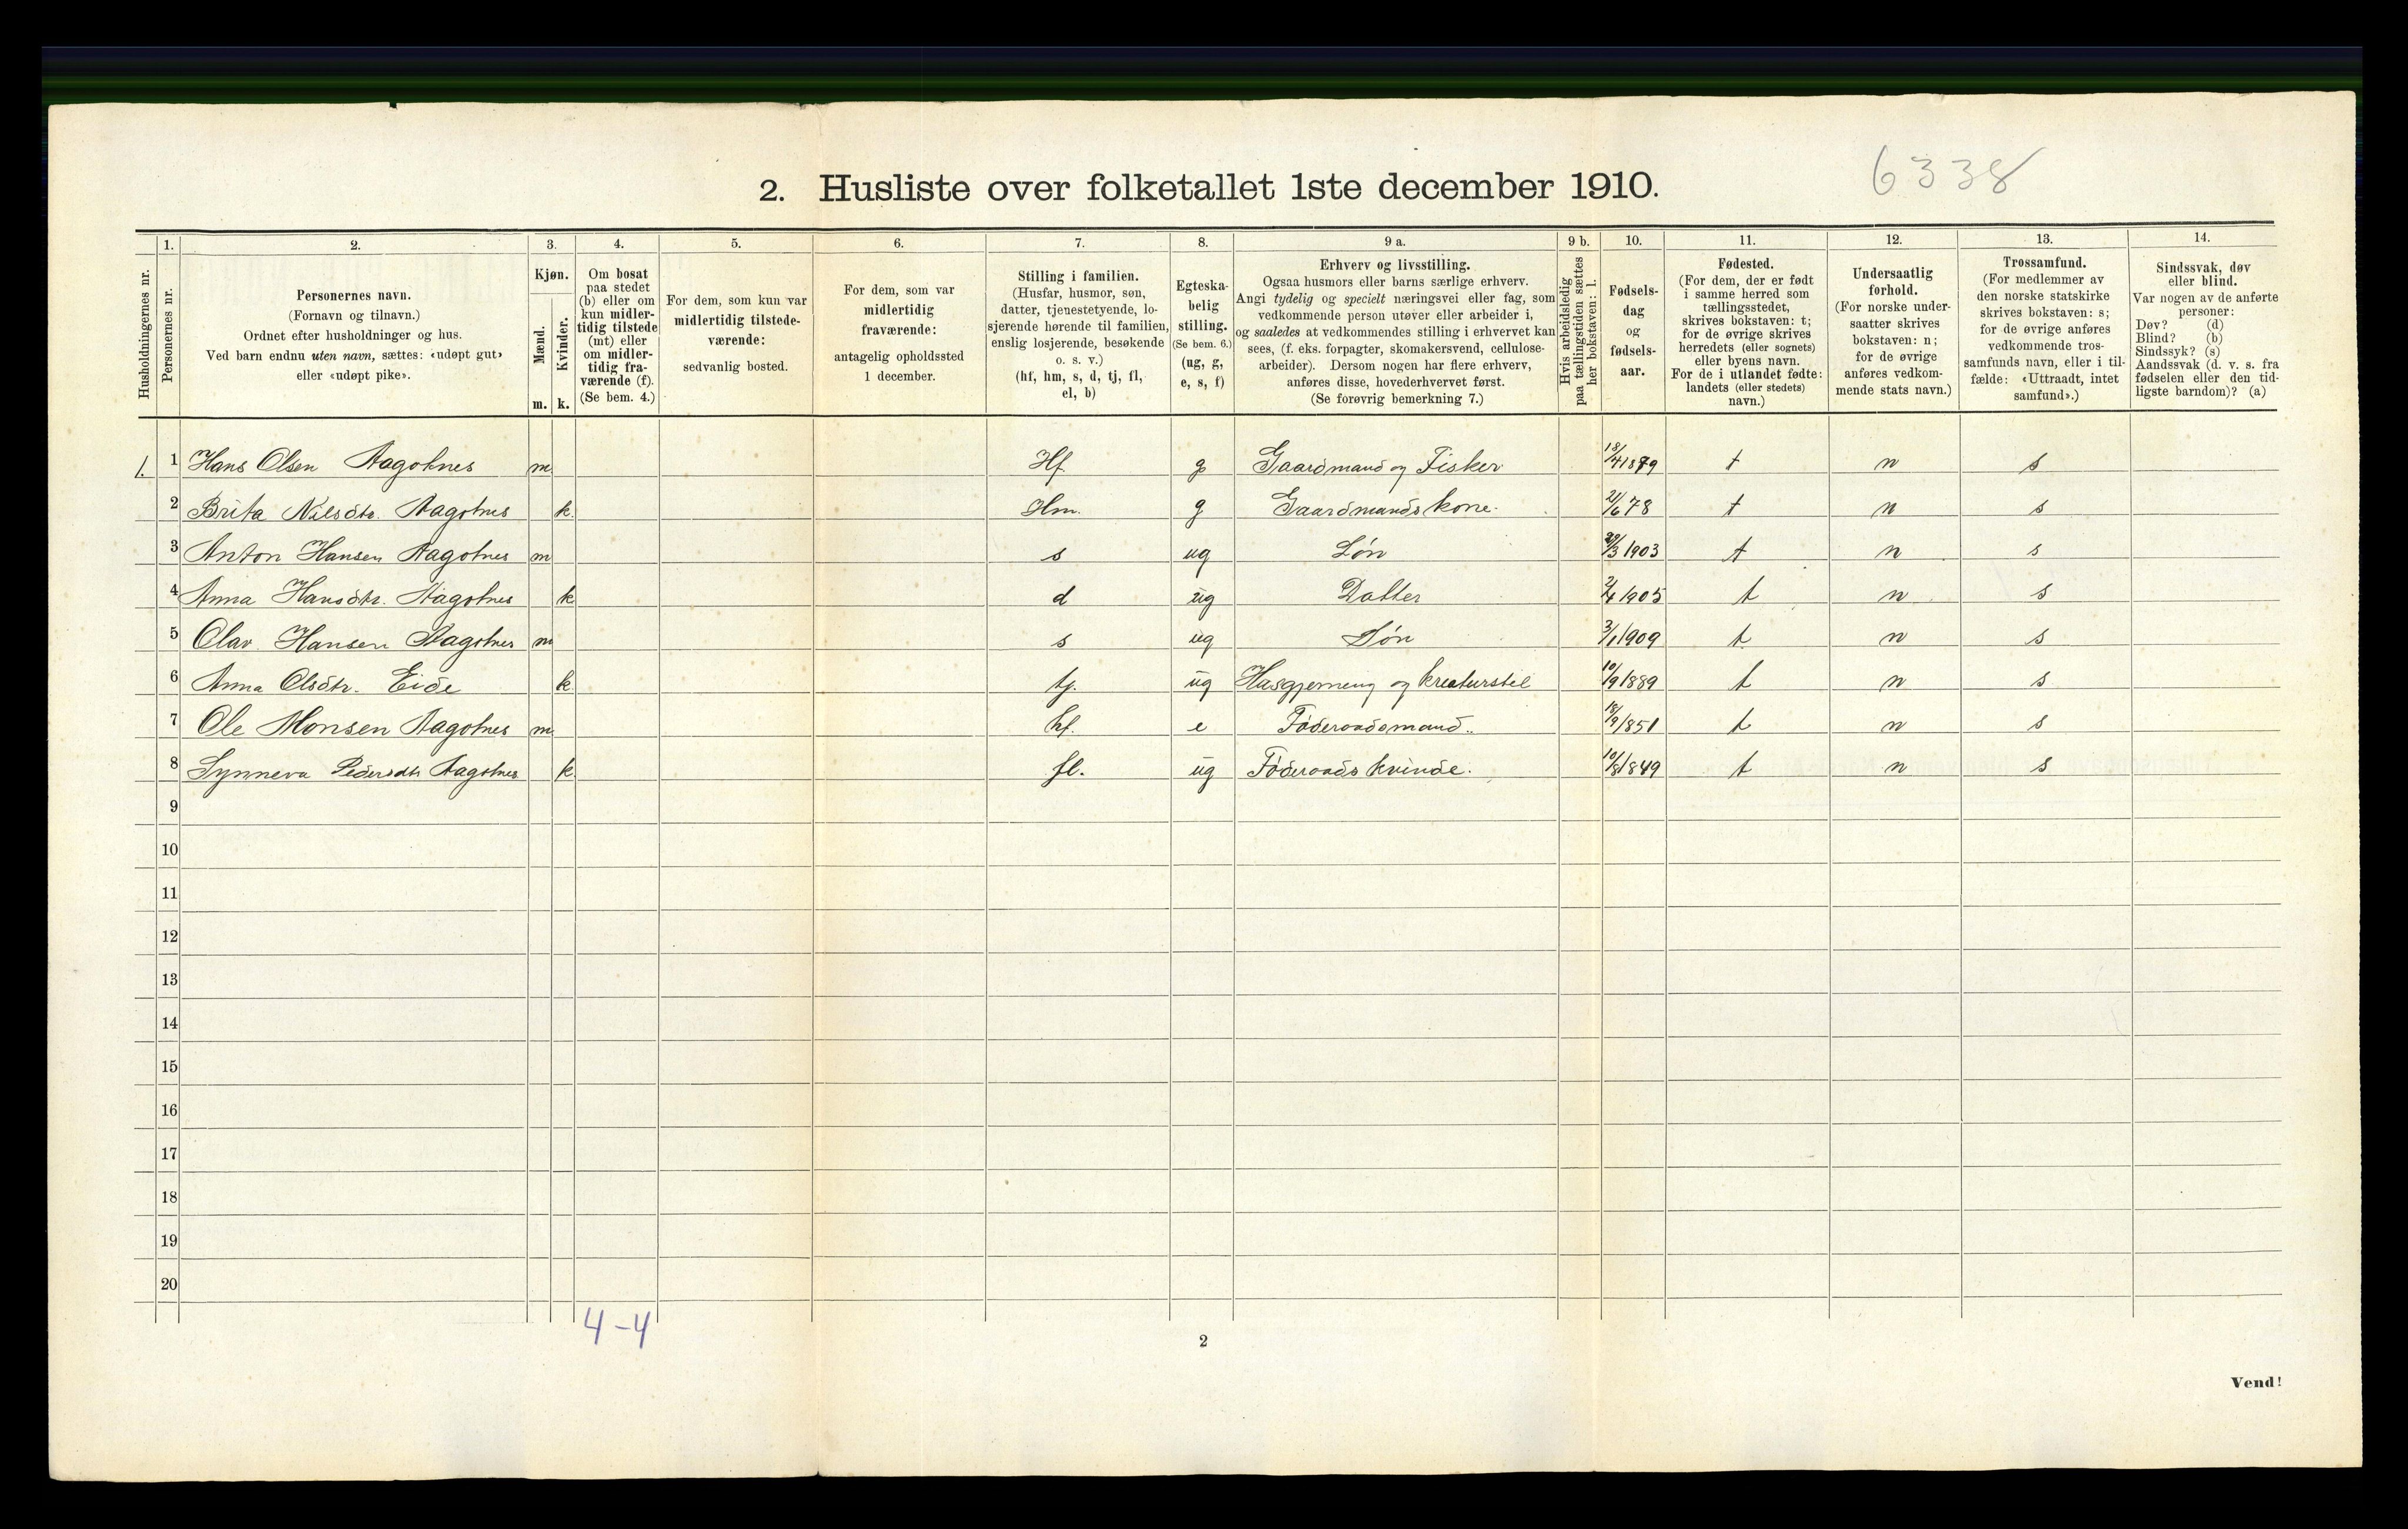 6338
2. Husliste over folketallet 1ste december 1910.
Husholdningernes nr.
1.
Personernes nr.
2.
Personernes navn.
(Fornavn og tilnavn.)
Ordnet efter husholdninger og hus.
Ved barn endnu uten navn, sættes: «udøpt gut»
eller «udøpt pike».
3.
Kjøn.
Mænd.
Kvinder.
m. k.
4.
Om bosat
paa stedet
(b) eller om
kun midler-
tidig tilstede
(mt) eller
om midler-
tidig fra-
værende (f).
(Se bem. 4.)
5.
For dem, som kun var
midlertidig tilstede-
værende:
sedvanlig bosted.
6.
For dem, som var
midlertidig
fraværende:
antagelig opholdssted
1 december.
7.
Stilling i familien.
(Husfar, husmor, søn,
datter, tjenestetyende, lo-
sjerende hørende til familien,
enslig losjerende, besøkende
o. s. v.)
(hf, hm, s, d, tj, fl,
el, b)
8.
Egteska-
belig
stilling.
(Se bem. 6.)
(ug, g,
e, s, f)
9 a.
Erhverv og livsstilling.
Ogsaa husmors eller barns særlige erhverv.
Angi tydelig og specielt næringsvei eller fag, som
vedkommende person utøver eller arbeider i,
og saaledes at vedkommendes stilling i erhvervet kan
sees, (f. eks. forpagter, skomakersvend, cellulose-
arbeider). Dersom nogen har flere erhverv,
anføres disse, hovederhvervet først.
(Se forøvrig bemerkning 7.)
9 b.
Hvis arbeidsledig
paa tællingstiden sættes
her bokstaven: l.
10.
Fødsels-
dag
og
fødsels-
aar.
11.
Fødested.
(For dem, der er født
i samme herred som
tællingsstedet,
skrives bokstaven: t;
for de øvrige skrives
herredets (eller sognets)
eller byens navn.
For de i utlandet fødte:
landets (eller stedets)
navn.)
12.
Undersaatlig
forhold.
(For norske under-
saatter skrives
bokstaven: n;
for de øvrige
anføres vedkom-
mende stats navn.)
13.
Trossamfund.
(For medlemmer av
den norske statskirke
skrives bokstaven: s;
for de øvrige anføres
vedkommende tros-
samfunds navn, eller i til-
fælde: «Uttraadt, intet
samfund».)
14.
Sindssvak, døv
eller blind.
Var nogen av de anførte
personer:
Døv? (d)
Blind? (b)
Sindssyk? (s)
Aandssvak (d. v. s. fra
fødselen eller den tid-
ligste barndom)? (a)
1. 1 Hans Olsen Aagotnes m Hf g Gaardmand og Fisker 18/4 1879 t n s
2 Brita Nilsdtr. Aagotnes k. Hm. g Gaardmands kone. 21/6 78 t n s
3 Anton Hansen Aagotnes m s ug Søn /3 1903 t n s
4 Anna Hansdtr. Aagotnes k d ug Datter 1905 t n s
5 Olav Hansen Aagotnes m s ug Søn 3/1 1909 t n s
6 Anna Olsdtr. Eide k tj. ug Husgjerning og kreaturstel 10/9 1889 t n s
7 Ole Monsen Aagotnes m hf. e Føderaadsmand. 18/9 1851 t n s
8 Synneva Pedersdtr Aagotnes k fl. ug Føderaads kvinde. 10/8 1849 t n s
9
10
11
12
13
14
15
16
17
18
19
20
4-4
2
Vend!